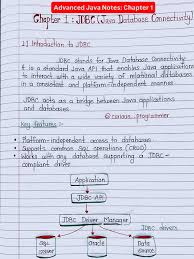 Advanced Java Notes: Chapter 1
Chapter 1 : JDBC (Java Database Connectivity)
1.1 Introduction to JDBC
JDBC stands for Java Database Connectivity.
It is a standard Java API that enables Java applications
to interact with a wide variety of relational databases
in a consistent and platform-independent manner.
JDBC acts as a bridge between Java applications
and databases.
@ curious_.programmer
Key features :-
• Platform-independent access to databases
• Supports common SQL operations (CRUD)
• Works with any database supporting a JDBC -
compliant driver.
Application
JDBC API
JDBC Driver Manager
JDBC drivers
SQL
server
Oracle
Data
source